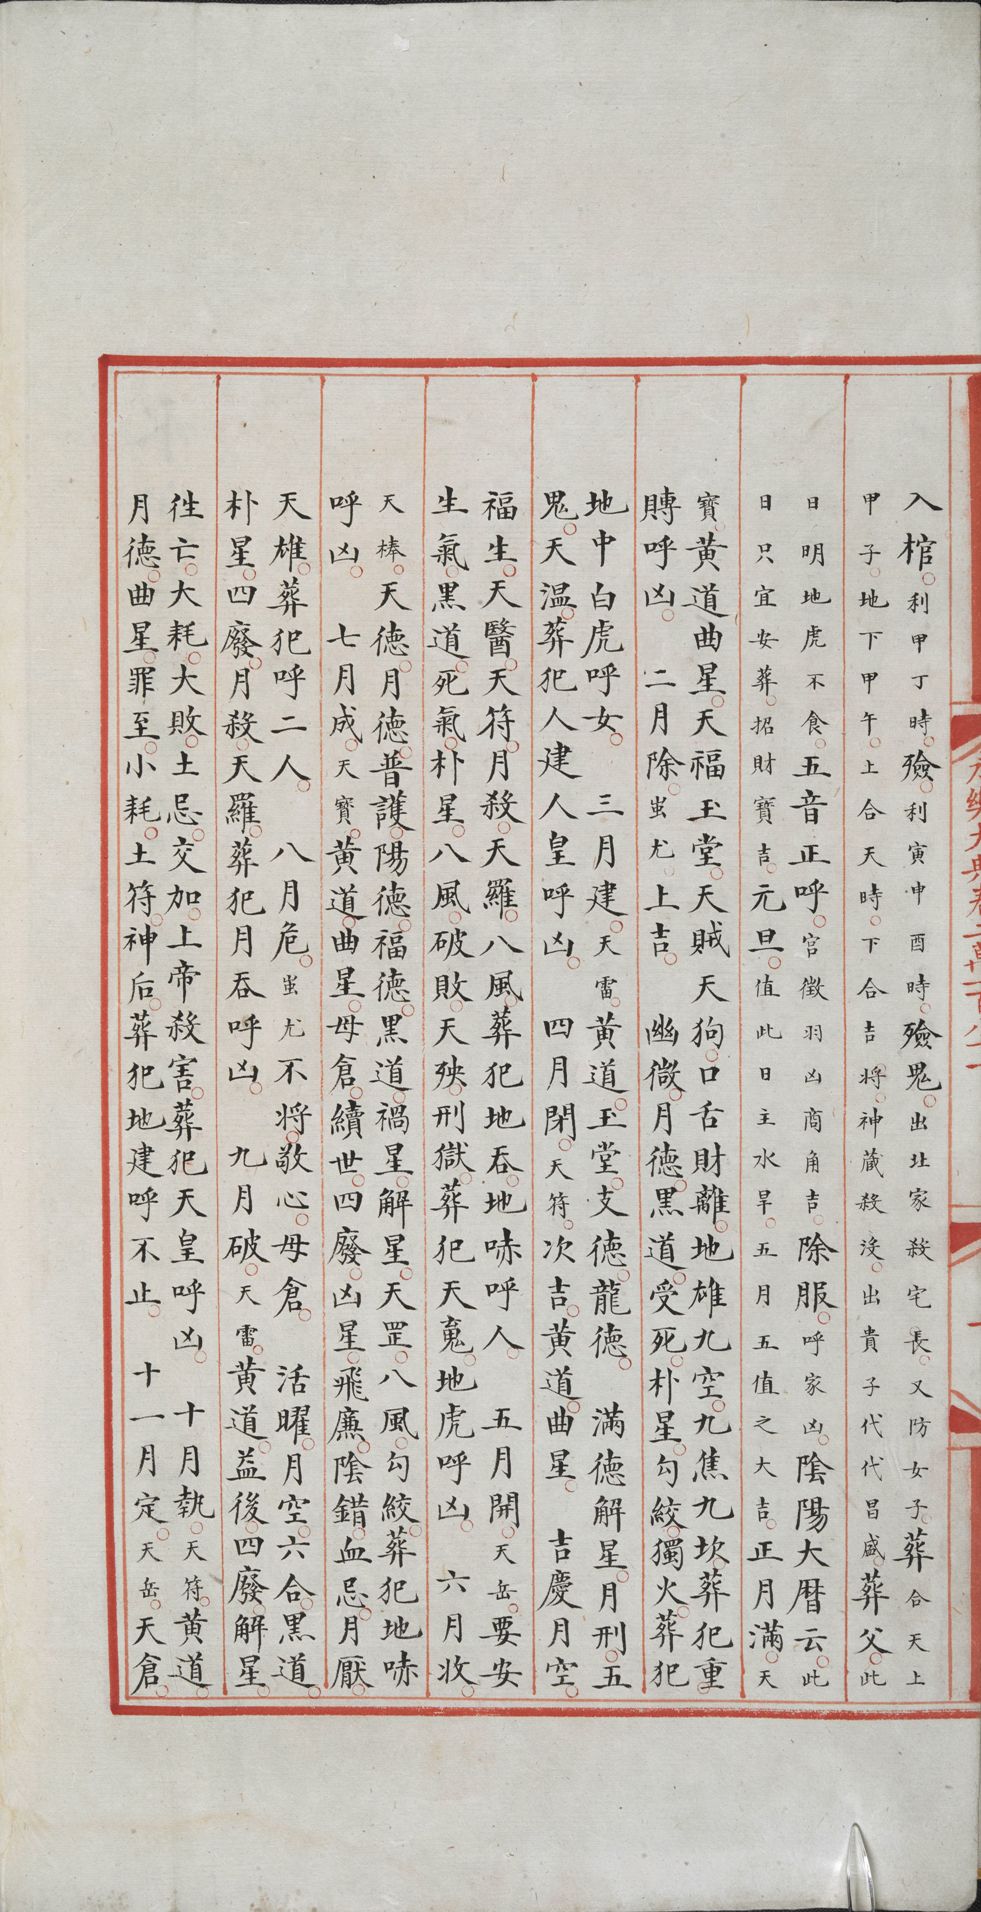 入棺。利甲丁時。殮。利寅申酉時。殮鬼。出北家殺宅長。又防女子。葬合天上
甲子。地下甲午。上合天時。下合吉將。神藏殺没。出貴子代代昌盛。葬父。此
日明地虎不食。五音正呼。宫徵羽凶商角吉。除服。呼家凶。陰陽大曆云。此
日只宜安葬。招財寶吉。元旦。值此日主水旱。五月五值之大吉。正月滿。天
寶。黄道曲星。天福玉堂。天賊天狗。口舌財離。地雄九空。九焦九坎。葬犯重
賻呼凶。 二月除。蚩尤。上吉。 幽微。月德。黑道。受死。朴星。勾絞。獨火。葬犯
地中白虎呼女。 三月建。天雷。黄道。玉堂。支德。龍德。 滿德解星。月刑。五
鬼。天温。葬犯人建人皇呼凶。 四月閉。天符。次吉。黄道。曲星。 吉慶月空。
福生。天醫。天符。月殺。天羅。八風。葬犯地吞。地啉呼人。 五月開。天岳。要安
生氣。黑道。死氣。朴星。八風。破敗。天殃。刑獄。葬犯天嵬。地虎呼凶。 六月收。
天棒。天德。月德。普護。陽德。福德。黑道。禍星。解星。天罡。八風。勾絞。葬犯地啉
呼凶。 七月成。天寳。黄道。曲星。母倉。續世。四廢。凶星。飛廉。陰錯。血忌。月厭。
天雄。葬犯呼二人。 八月危。蚩尤不將。敬心。母倉。 活曜。月空。六合。黑道。
朴星。四廢。月殺。天羅。葬犯月吞呼凶。 九月破。天雷。黄道。益後。四廢。解星。
徃亡。大耗。大敗。土忌。交加。上帝殺害。葬犯天皇呼凶。 十月執。天符。黄道
月德。曲星。罪至。小耗。土符。神后。葬犯地建呼不止。 十一月定。天岳。天倉。